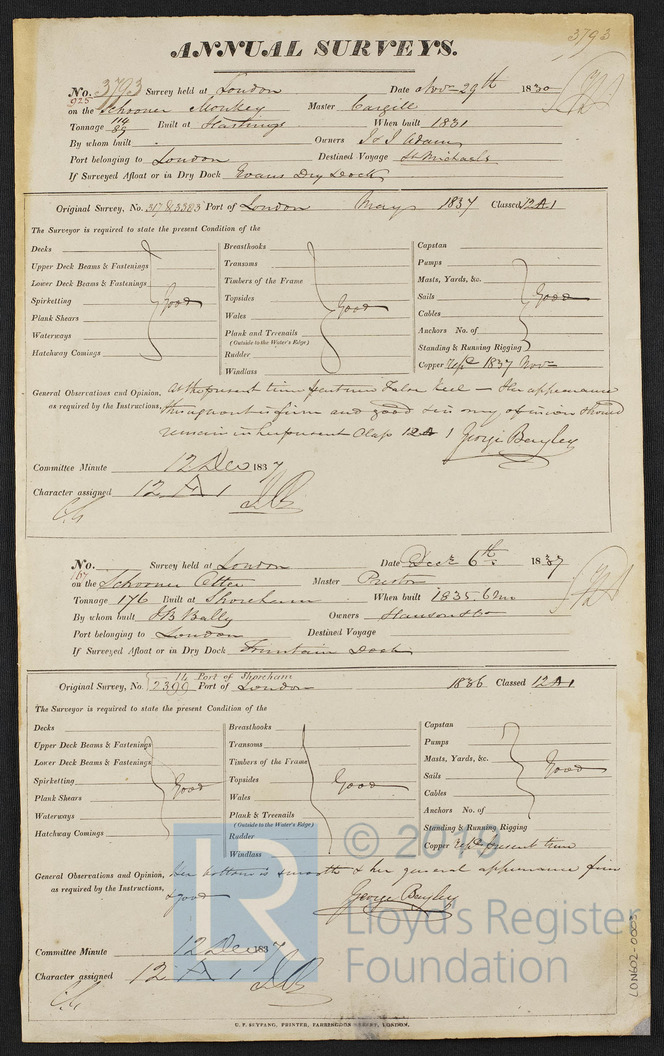 3793
ANNUAL SURVEYS.
No. 3793 Survey held at London Date Nov 29th 1830
925
on the Schooner Monkey Master Cargill
Tonnage 110/89 Built at Hastings When built 1831
By whom built Owners J & J Adam
Port belonging to London Destined Voyage St Michaels
If Surveyed Afloat or in Dry Dock Evans Dry Dock
Original Survey, No. 317 & 3383 Port of London May 1837 Classed 12 A 1
The Surveyor is required to state the present Condition of the
Decks
Upper Deck Beams & Fastenings
Lower Deck Beams & Fastenings
Spirketting Good
Plank Shears
Waterways
Hatchway Comings
Breasthooks
Transoms
Timbers of the Frame
Topsides Good
Wales
Plank and Treenails
(Outside to the Water's Edge)
Rudder
Windlass
Capstan
Pumps
Masts, Yards, &c.
Sails Good
Cables
Anchors No. of
Standing & Running Rigging
Copper Repd 1837 Nov
General Observations and Opinion, At the present time part new False Keel – Her appearance
as required by the Instructions, throughout is firm and good & in my opinion should
remain in her present Class 12 A 1 George Bayley
Committee Minute 12 Dec 1837
Character assigned 12 A 1
No. Survey held at London Date Decr 6th 1837
167
on the Schooner Otter Master Preston
Tonnage 176 Built at Shoreham When built 1835. 6 Mo
By whom built J B Bally Owners Hanson & Co
Port belonging to London Destined Voyage
If Surveyed Afloat or in Dry Dock Fountain Dock
14 Port of Shoreham
Original Survey, No. 2399 Port of London 1836 Classed 12 A 1
The Surveyor is required to state the present Condition of the
Decks
Upper Deck Beams & Fastenings
Lower Deck Beams & Fastenings
Spirketting Good
Plank Shears
Waterways
Hatchway Comings
Breasthooks
Transoms
Timbers of the Frame
Topsides Good
Wales
Plank & Treenails
(Outside to the Water's Edge)
Rudder
Windlass
Capstan
Pumps
Masts, Yards, &c.
Sails Good
Cables
Anchors No. of
Standing & Running Rigging
Copper Repd present time
General Observations and Opinion, her bottom is smooth & her general appearance firm
as required by the Instructions, & good George Bayley
Committee Minute 12 Dec 1837
Character assigned 12 A 1
LR © 2019
Lloyd's Register
Foundation
LON602-0003
C. F. SEYFANG, PRINTER, FARRINGDON STREET, LONDON.